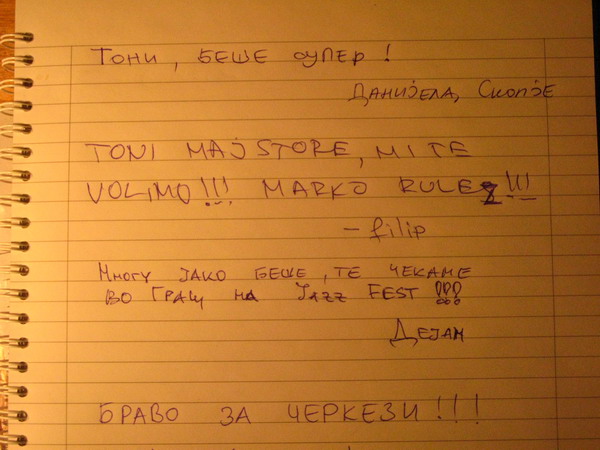 Тони, БЕШЕ СУПЕР!
ДАНИЈЕЛА, СКОПЈЕ
TONI MAJSTORE, MI TE
VOLIMO!!! MARKO RULEZ!!!
- filip
Многу јако беше, те чекаме
во Грац на Jazz Fest !!!
Дејан
БРАВО ЗА ЧЕРКЕЗИ!!!